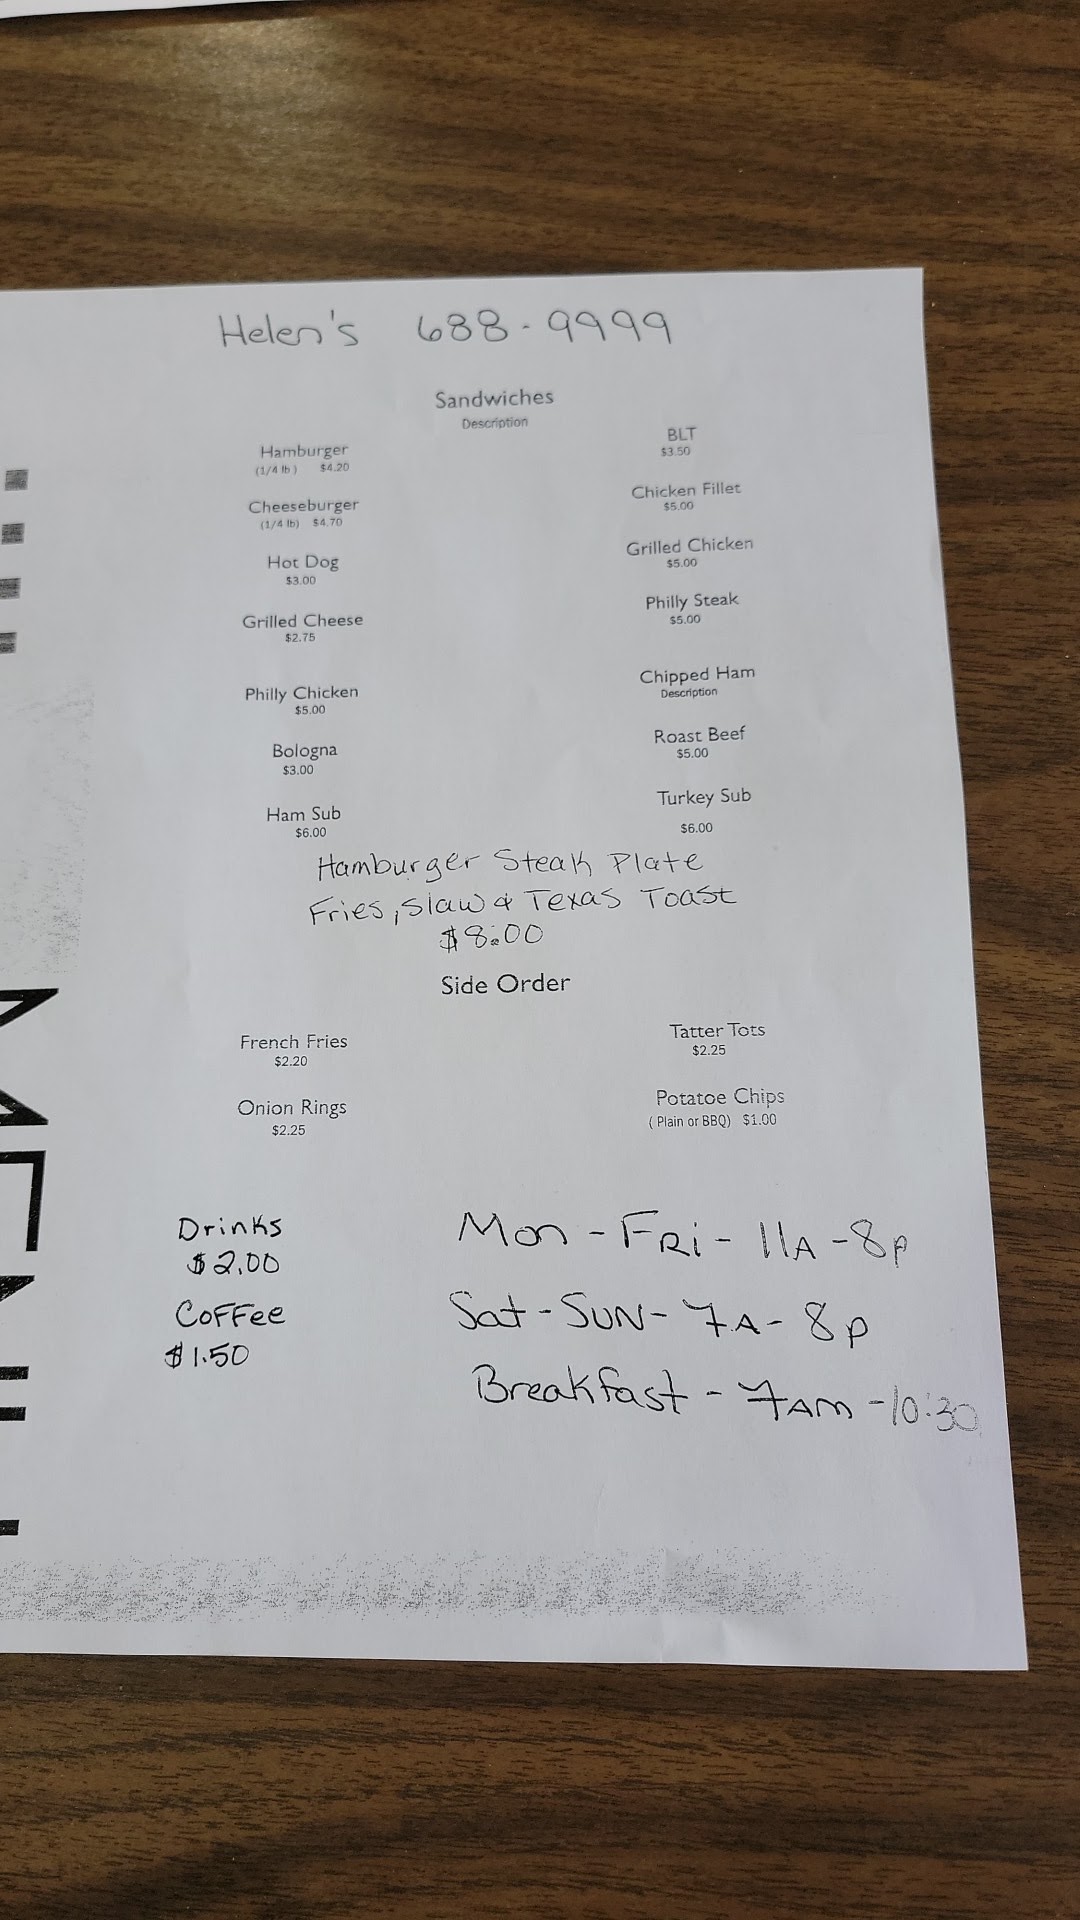 Helen's 688-9999
Sandwiches
Description
Hamburger
(1/4 lb) $4.20
BLT
$3.50
Cheeseburger
(1/4 lb) $4.70
Chicken Fillet
$5.00
Hot Dog
$3.00
Grilled Chicken
$5.00
Grilled Cheese
$2.75
Philly Steak
$5.00
Philly Chicken
$5.00
Chipped Ham
Description
Bologna
$3.00
Roast Beef
$5.00
Ham Sub
$6.00
Turkey Sub
$6.00
Hamburger Steak Plate
Fries, Slaw & Texas Toast
$8.00
Side Order
French Fries
$2.20
Tatter Tots
$2.25
Onion Rings
$2.25
Potatoe Chips
( Plain or BBQ) $1.00
Drinks
$2.00
CoFFee
$1.50
Mon - FRi - 11A - 8p
Sat - SUN - 7A - 8p
Breakfast - 7AM - 10:30
MENU